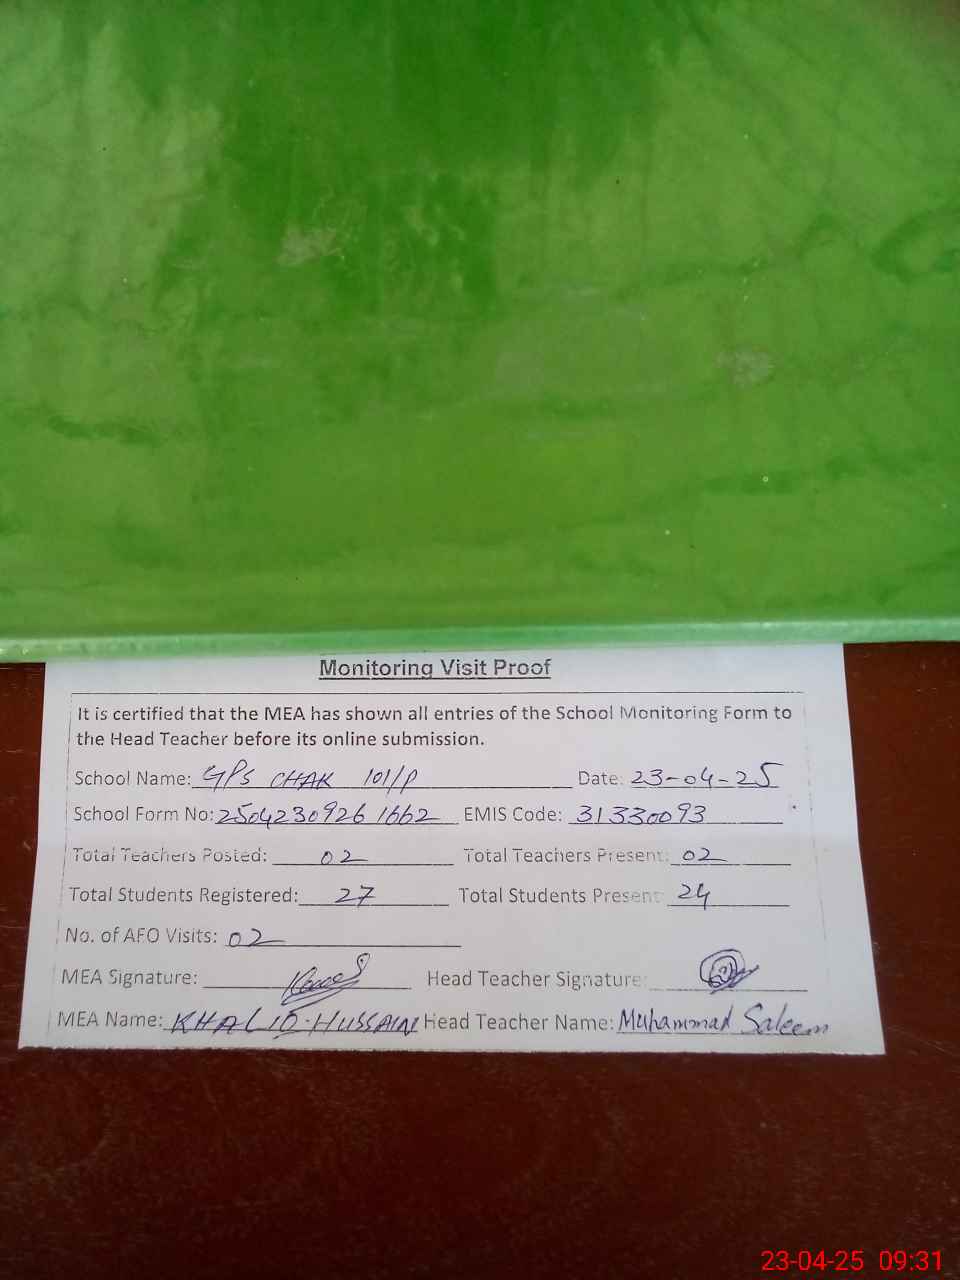 Monitoring Visit Proof
It is certified that the MEA has shown all entries of the School Monitoring Form to
the Head Teacher before its online submission.
School Name: GPS CHAK 101/P Date: 23-04-25
School Form No: 25042309261662 EMIS Code: 31330093
Total Teachers Posted: 02 Total Teachers Present: 02
Total Students Registered: 27 Total Students Present: 24
No. of AFO Visits: 02
MEA Signature: Head Teacher Signature:
MEA Name: KHALIQ HUSSAIN Head Teacher Name: Muhammad Saleem
23-04-25 09:31